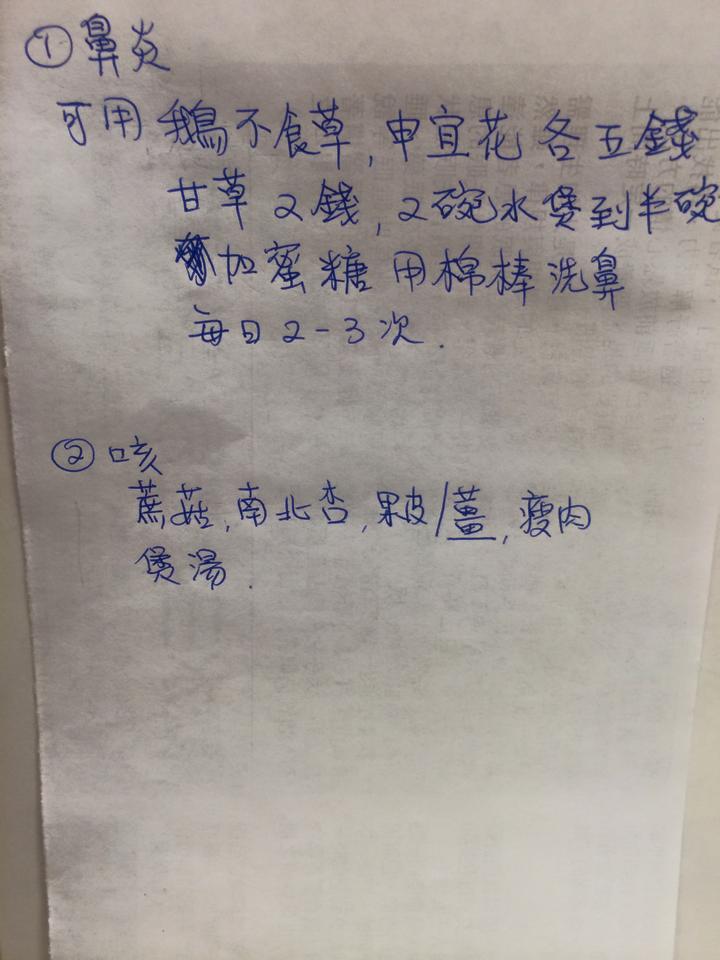 ① 鼻炎
可用 鵝不食草, 申宜花 各五錢
甘草 2錢, 2碗水煲到半碗
加蜜糖 用棉棒洗鼻
每日 2-3 次.
② 咳
蔗菇, 南北杏, 果皮/薑, 瘦肉
煲湯.